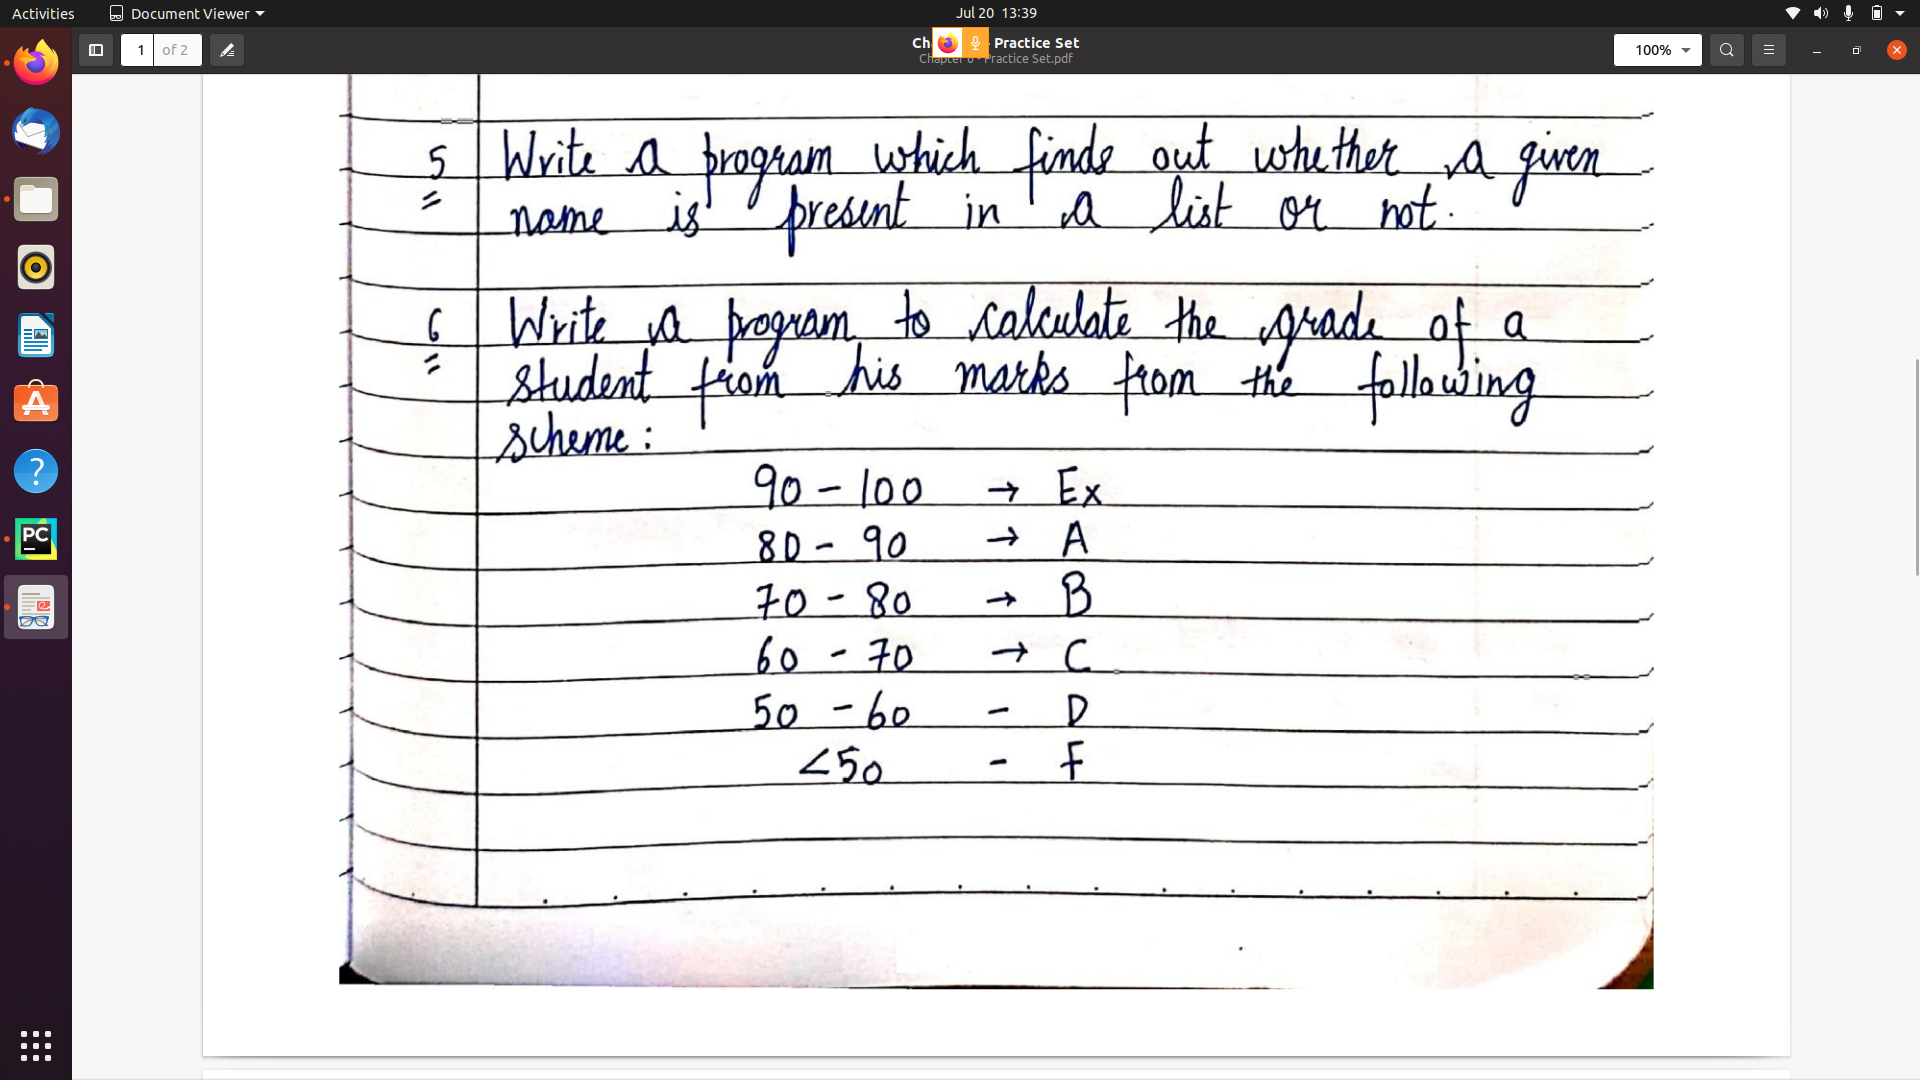 Activities
Document Viewer
Jul 20 13:39
1 of 2
Practice Set
Practice Set.pdf
100%
5 Write a program which finds out whether a given
name is present in a list or not.
6 Write a program to calculate the grade of a
student from his marks from the following
scheme:
90 - 100 → Ex
80 - 90 → A
70 - 80 → B
60 - 70 → C
50 - 60 - D
<50 - F
PC